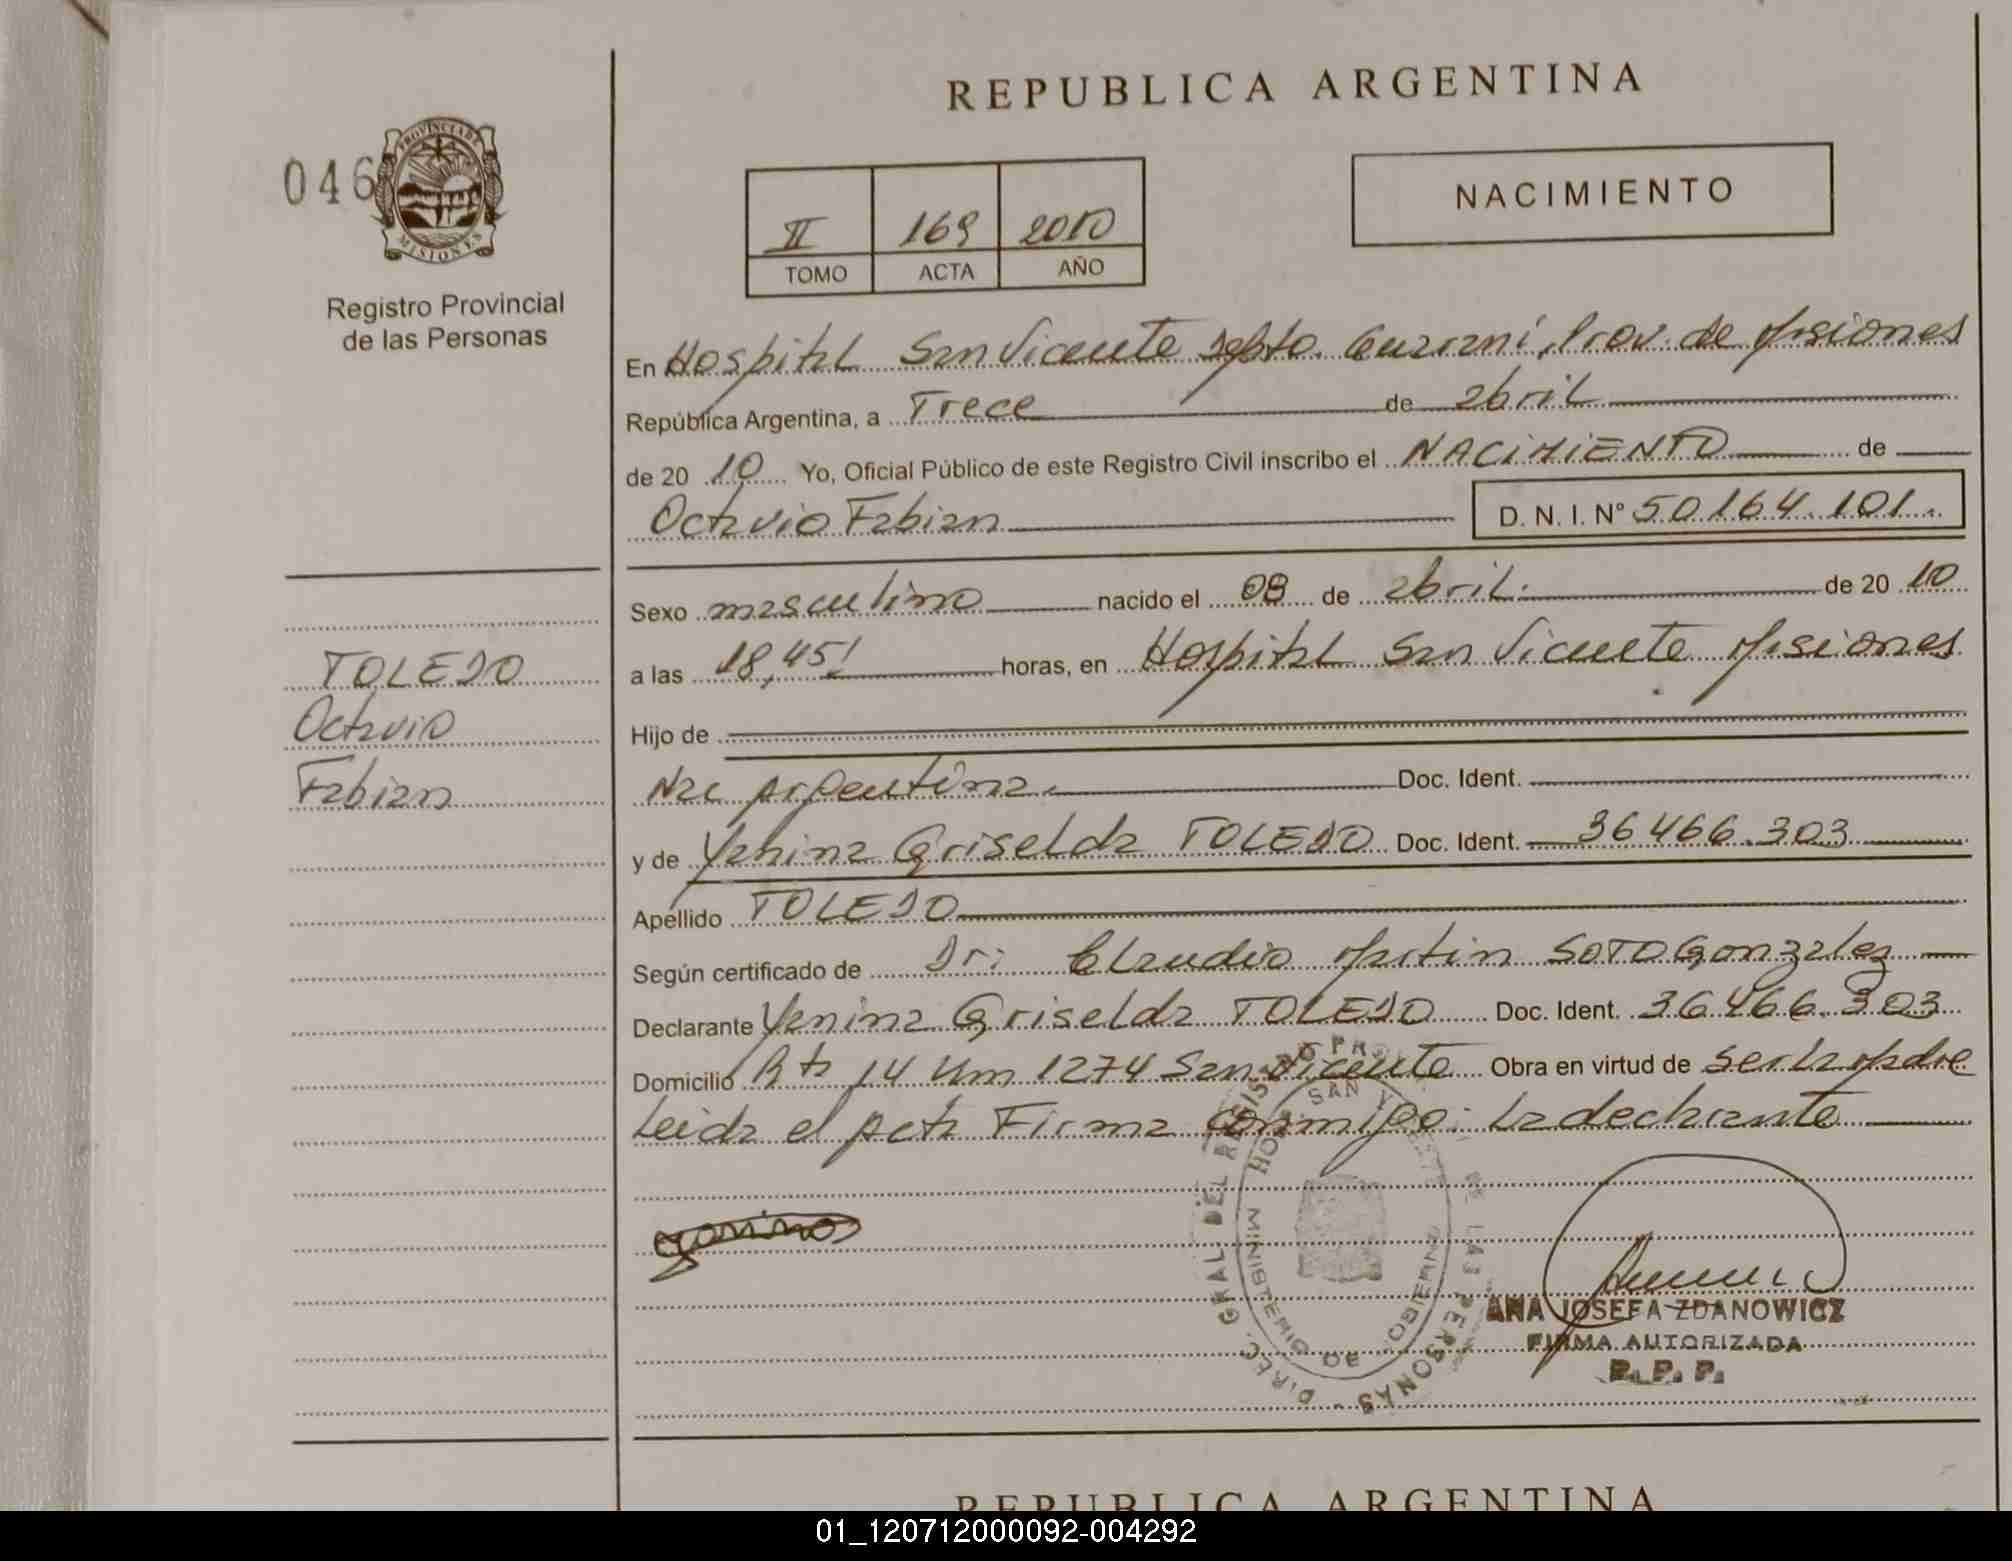 REPUBLICA ARGENTINA
046
PROVINCIA DE
MISIONES
Registro Provincial
de las Personas
II 169 2010
TOMO ACTA AÑO
NACIMIENTO
En Hospital San Vicente Dpto. Guaraní, Prov. de Misiones
República Argentina, a Trece de abril
de 20 10 Yo, Oficial Público de este Registro Civil inscribo el NACIMIENTO de
Octavio Fabian D. N. I. N° 50164.101.
Sexo masculino nacido el 08 de abril. de 20 10
a las 18,45! horas, en Hospital San Vicente Misiones
Hijo de
Nac Argentina. Doc. Ident.
y de Yanina Griselda TOLEDO Doc. Ident. 36466.303
Apellido TOLEDO
Según certificado de Dr: Claudio Martin SOTO Gonzalez
Declarante Yanina Griselda TOLEDO Doc. Ident. 36466.303
Domicilio Rta 14 Km 1274 San Vicente Obra en virtud de ser la Madre
Leida el Acta Firma conmigo: La declarante
TOLEDO
Octavio
Fabian
yanina
DIREC. GRAL DEL REGISTRO PROV. DE LAS PERSONAS
MINISTERIO DE GOBIERNO
HOSP. SAN
ANA JOSEFA ZDANOWICZ
FIRMA AUTORIZADA
R. P. P.
REPUBLICA ARGENTINA
01_120712000092-004292